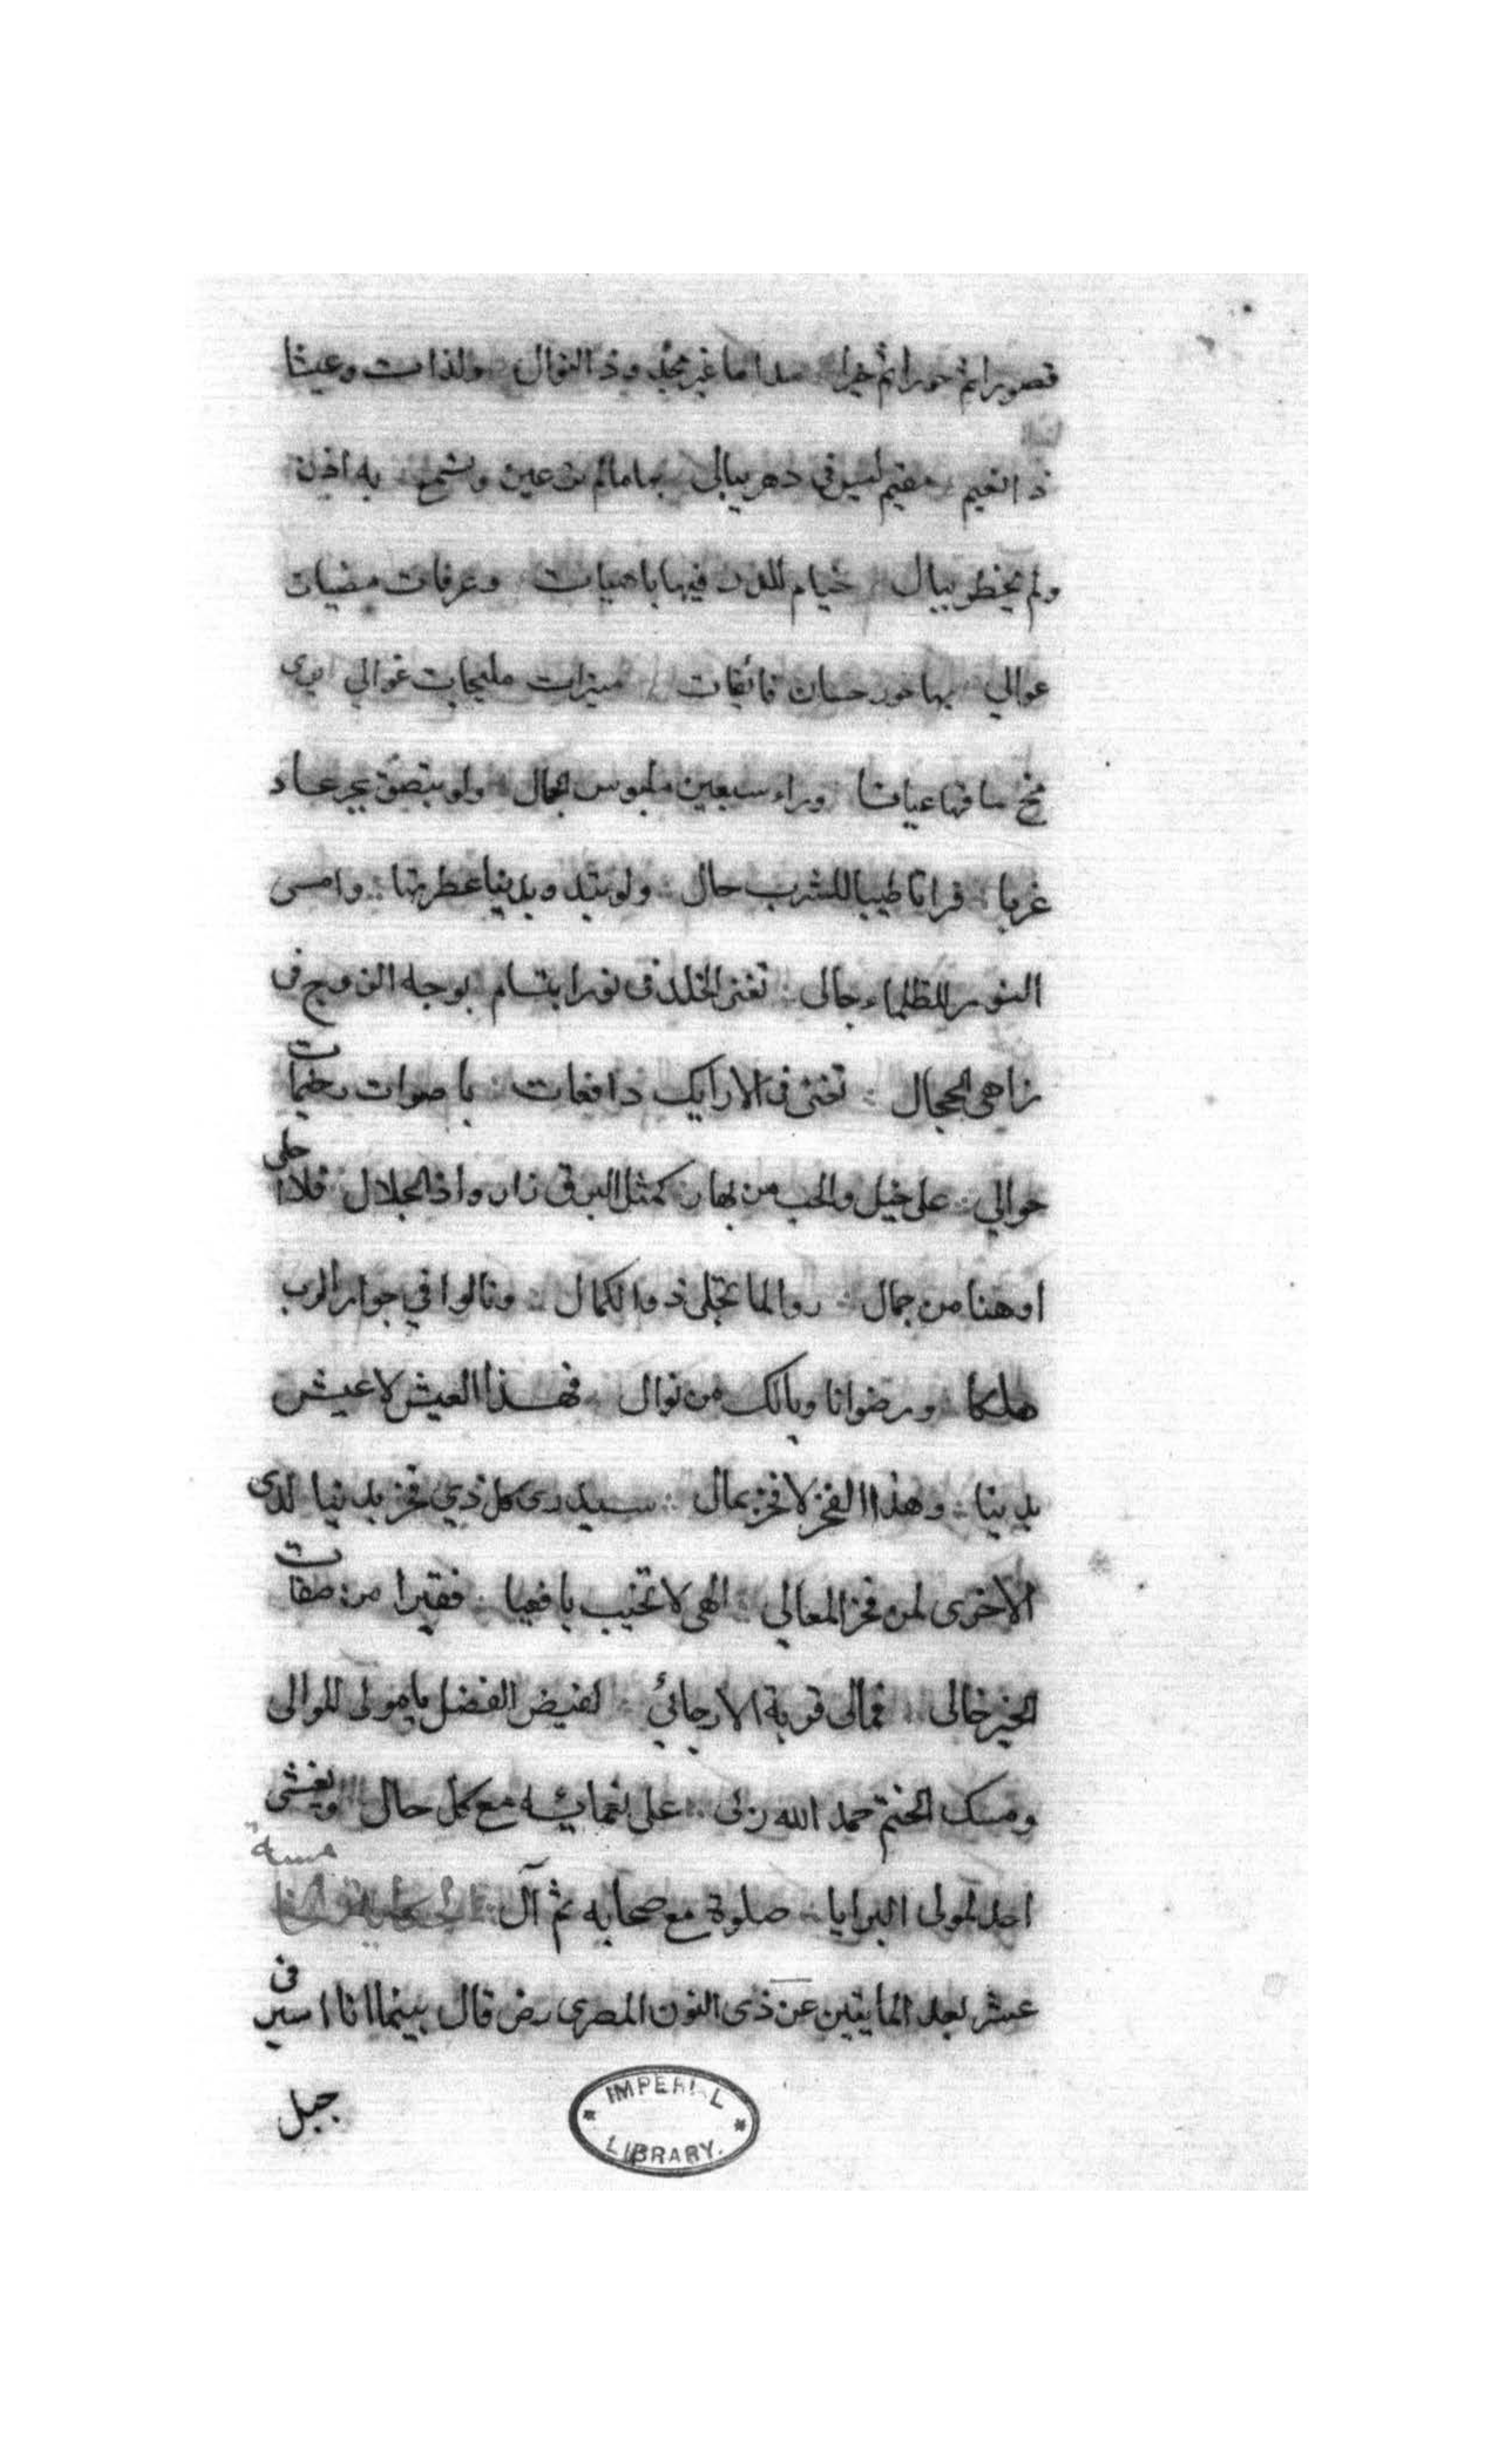 قصورا ثم حورا ثم خيرا مداما غير مجذوذ النوال ولذات وعيشا
ذا نعيم مقيم ليس في دهر ببالي بها مالم تر عين وتسمع به اذن
ولم يخطر ببال خيام للدر فيها باهيات وغرفات مضيات
عوالي بها حور حسان فائقات منيرات مليحات غوالي يرى
مخ ساقها عيانا وراء سبعين ملبوس الجمال ولو بتصق بحر عاد
غربا فراتا طيبا للشرب حال ولو تبدو بدنيا عطرتها وامسى
النور للظلماء جالى تغنى الخلد فى نور ابتسام بوجه الزوج فى
زاهى الحجال تغنى فى الارايك رافعات باصوات رخيمات
حوالي على خيل والحب من بها كمثل البرق زاروا ذا الجلال فلا احلى
اوهنا من جمال روا لما تجلى ذوالكمال ونالوا في جوار الرب
ملكا ورضوانا ويالك من نوال فهذا العيش لا عيش
بدنيا وهذا الفخر لا فخر بمال سيدرى كل ذي فخر بدنيا لدى
الاخرى لمن فخر المعالي الهى لا تخيب يافعيا فقيرا من صفات
الخير خالى فمالى قربة الا رجائي لفيض الفضل يا مولى الموالى
ومسك الختم حمد الله ربى على نعمائه مع كل حال ويغشى
احمد المولى البرايا صلوة مع صحابه ثم آل الحكاية
عشر بعد المايتين عن ذى النون المصرى رض قال بينما انا اسير فى
جبل
IMPERIAL
LIBRARY.